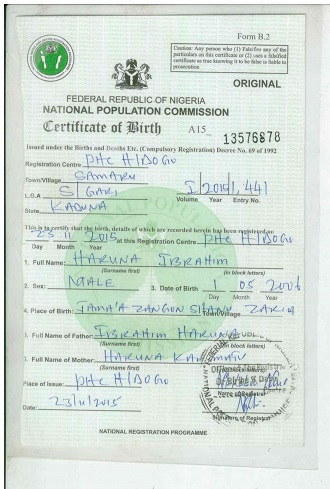 Form B.2
Caution: Any person who (1) Falsifies any of the
particulars on this certificate or (2) uses a falsified
certificate as true knowing it to be false is liable to
prosecution
ORIGINAL
FEDERAL REPUBLIC OF NIGERIA
NATIONAL POPULATION COMMISSION
Certificate of Birth A15 13576878
Issued under the Births and Deaths Etc. (Compulsory Registration) Decree No. 69 of 1992
Registration Centre PHC H/DOGO
Town/Village SAMARU
L.G.A S/GARI 1 2015 1,441
State KADUNA Volume Year Entry No.
This is to certify that the birth, details of which are recorded herein has been registered on
23 11 2015 at this Registration Centre PHC H/DOGO
Day Month Year
1. Full Name: HARUNA IBRAHIM
(Surname first) (in block letters)
2. Sex: MALE 3. Date of Birth 1 05 2006
Day Month Year
4. Place of Birth: ZANGON ZARIA
Town/Village
5. Full Name of Father: IBRAHIM HARUNA
(Surname first) (in block letters)
6. Full Name of Mother: HARUNA
(Surname first) (in block letters)
Place of Issue: PHC H/DOGO
Name of Registrar
Date: 23/11/2015
Signature of Registrar
NATIONAL REGISTRATION PROGRAMME